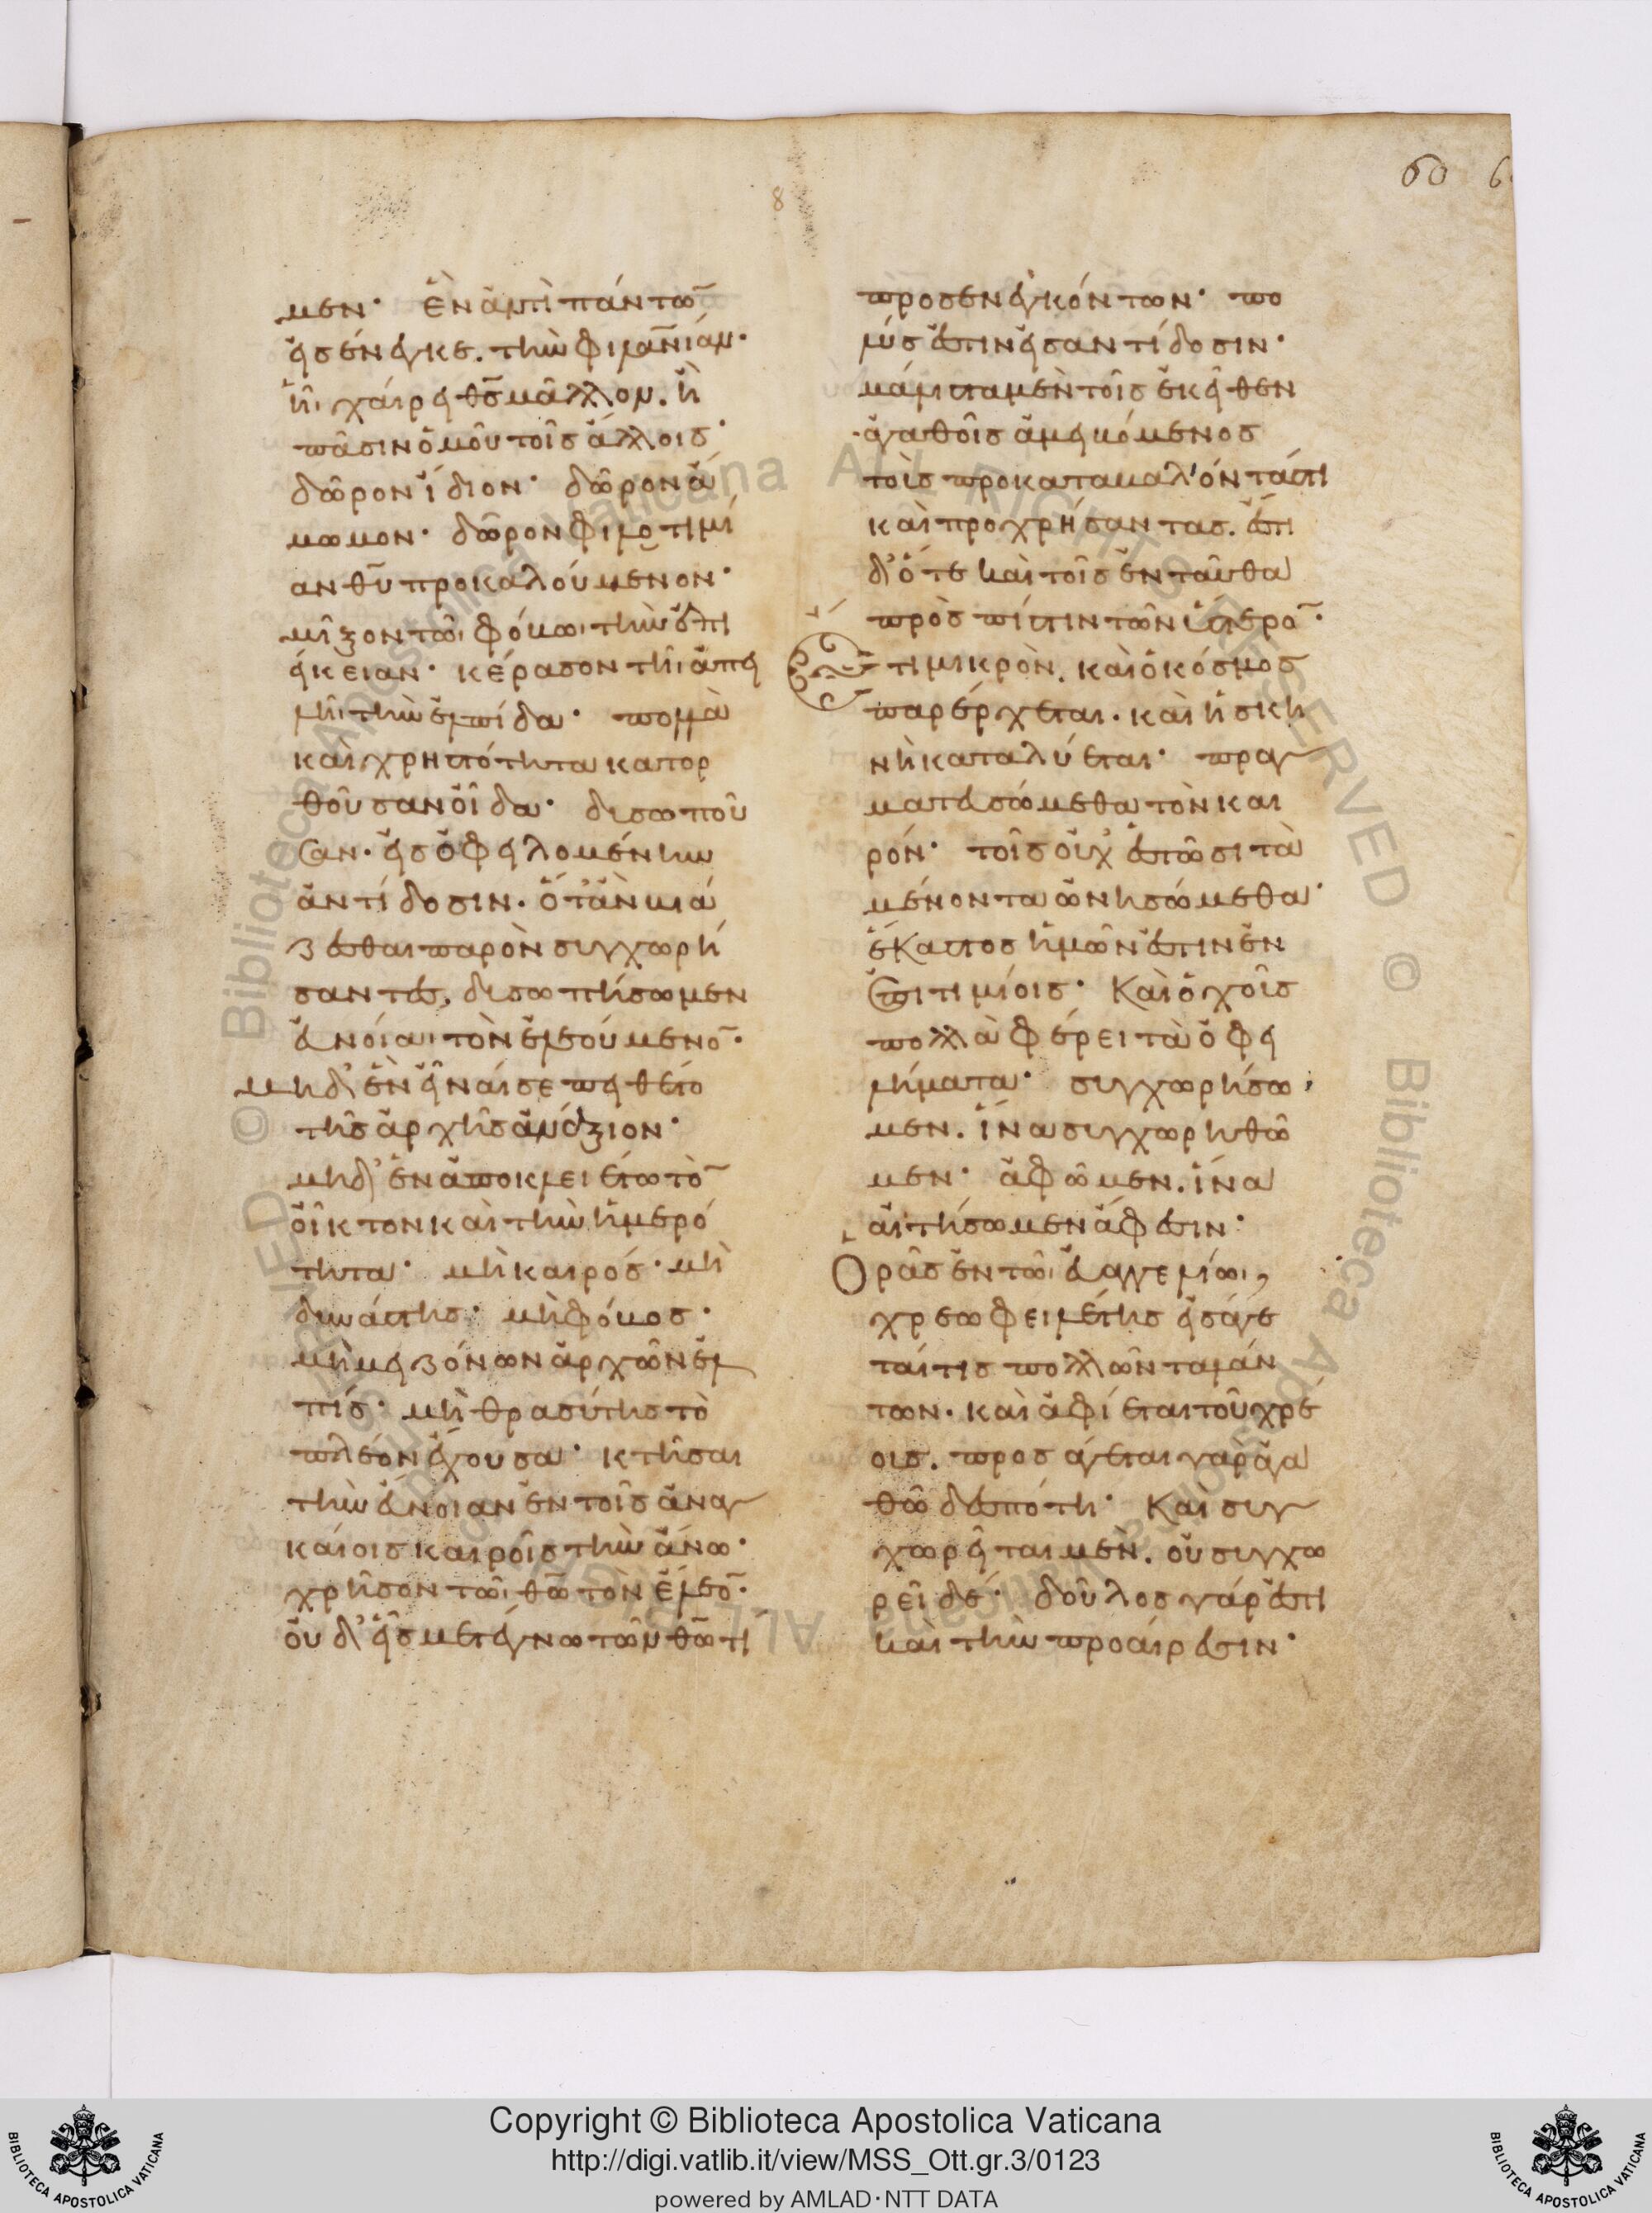 60 6
8
μεν· ἓν ἀντὶ πάντω̅
εἰσένεγκε. τὴν φιλα̅νίαν·
ἧι χαίρει θ̅ς μᾶλλον. ἢ
πᾶσιν ὁμοῦ τοῖς ἄλλοις·
δῶρον ἴδιον· δῶρον ἄ
μωμον· δῶρον φιλοτιμί
αν θ̅υ προκαλούμενον·
μῖξον τῶι φόβωι τὴν ἐπι
είκειαν· κέρασον τῆι ἀπει
λῆι τὴν ἐλπίδα· πολλὰ
καὶ χρηστότητα κατορ
θοῦσαν οἶδα· δυσωποῦ
σαν· εἰς ὀφειλομένην
ἀντίδοσιν· ὅτ' ἂν βιά
ζεσθαι παρὸν συγχωρή
σαντες, δυσωπήσωμεν
εὐνοίαι τὸν ἐλεούμενο̅·
μηδ' ἓν εἶναί σε πειθέτο
τῆς ἀρχῆς ἀνάξιον·
μηδ' ἓν ἀποκλειέτω τὸ̅
οἶκτον καὶ τὴν ἡμερό
τητα· μὴ καιρός· μὴ
δυνάστης· μὴ φόβος·
μὴ μειζόνων ἀρχῶν ἐλ
πίς· μὴ θρασύτης τὸ
πλέον ἔχουσα· κτῆσαι
τὴν εὔνοιαν ἐν τοῖς ἀναγ
καίοις καιροῖς τὴν ἄνω·
χρῆσον τῶι θ̅ω τὸν ἔλεο̅·
οὐδ' εἷς μετέγνω τῶν θ̅ω τι
προσενεγκόντων· πο
λύς ἐστιν εἰς ἀντίδοσιν·
μάλιστα μὲν τοῖς ἐκεῖθεν
ἀγαθοῖς ἀμειβόμενος
τοὺς προκαταβαλόντάς τι
καὶ προχρήσαντας. ἔστι
δ' ὅτε καὶ τοῖς ἐνταῦθα
πρὸς πίστιν τῶν ὕστερο̅·
Ἔτι μικρὸν. καὶ ὁ κόσμος
παρέρχεται· καὶ ἡ σκη
νὴ καταλύεται· πραγ
ματευσώμεθα τὸν και
ρόν· τοῖς οὐχ ἑστῶσι τὰ
μένοντα ὠνησώμεθα·
ἕκαστος ἡμῶν ἐστιν ἐν
ἐπιτιμίοις· Καὶ ὁ χοῦς
πολλὰ φέρει τὰ ὀφει
λήματα· συγχωρήσω
μεν. ἵνα συγχωρηθῶ
μεν· ἀφῶμεν. ἵνα
αἰτήσωμεν ἄφεσιν·
Ὁρᾶς ἐν τῶι εὐαγγελίωι,
χρεωφειλέτης εἰσάγε
ταί τις πολλῶν ταλάν
των· καὶ ἀφίεται τοῦ χρέ
οις. προσάγεται γὰρ ἀγα
θῶ δεσπότη· Καὶ συγ
χωρεῖται μὲν. οὐ συγχω
ρεῖ δέ· δοῦλος γάρ ἐστι
καὶ τὴν προαίρεσιν·
© Biblioteca Apostolica Vaticana ALL RIGHTS RESERVED
Copyright © Biblioteca Apostolica Vaticana
http://digi.vatlib.it/view/MSS_Ott.gr.3/0123
powered by AMLAD·NTT DATA
BIBLIOTECA APOSTOLICA VATICANA
BIBLIOTECA APOSTOLICA VATICANA